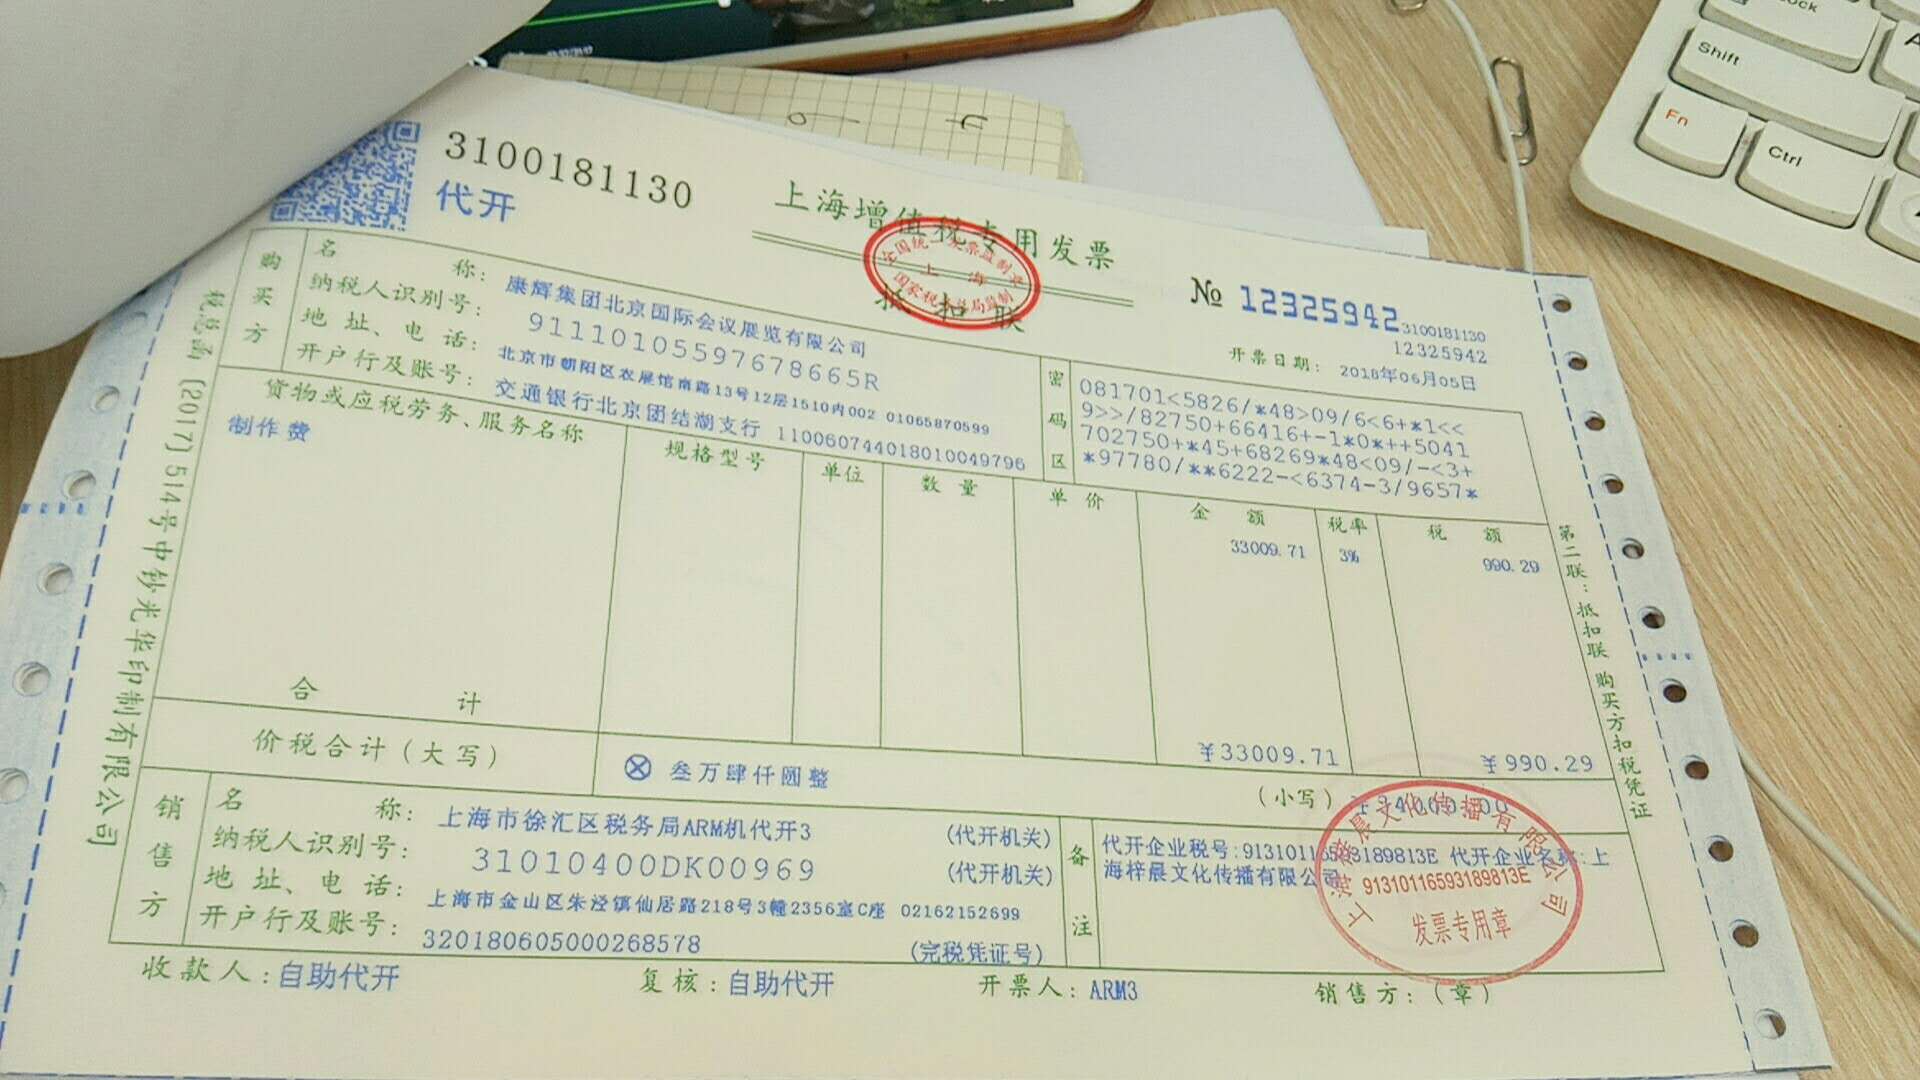 3100181130
代开
上海增值税专用发票
全国统一发票监制章
上海
国家税务总局监制
抵扣联
№ 12325942
3100181130
12325942
开票日期: 2018年06月05日
购买方
名 称: 康辉集团北京国际会议展览有限公司
纳税人识别号: 91110105597678665R
地 址、电 话: 北京市朝阳区农展馆南路13号12层1510内002 01065870599
开户行及账号: 交通银行北京团结湖支行 110060744018010049796
密码区
081701<5826/*48>09/6<6+*1<<
9>>/82750+66416+-1*0*++5041
702750+*45+68269*48<09/-<3+
*97780/**6222-<6374-3/9657*
货物或应税劳务、服务名称 规格型号 单位 数 量 单 价 金 额 税率 税 额
制作费 33009.71 3% 990.29
合 计 ¥33009.71 ¥990.29
价税合计(大写) ⊗ 叁万肆仟圆整 (小写) ¥34000.00
销售方
名 称: 上海市徐汇区税务局ARM机代开3 (代开机关)
纳税人识别号: 31010400DK00969 (代开机关)
地 址、电 话: 上海市金山区朱泾镇仙居路218号3幢2356室C座 02162152699
开户行及账号: 320180605000268578 (完税凭证号)
备注
代开企业税号:91310116593189813E 代开企业名称:上
海梓晨文化传播有限公司
上海梓晨文化传播有限公司
91310116593189813E
发票专用章
收款人:自助代开 复核:自助代开 开票人:ARM3 销售方:(章)
税总函(2017)514号中钞光华印制有限公司
第二联:抵扣联 购买方扣税凭证
Shift
Fn
Ctrl